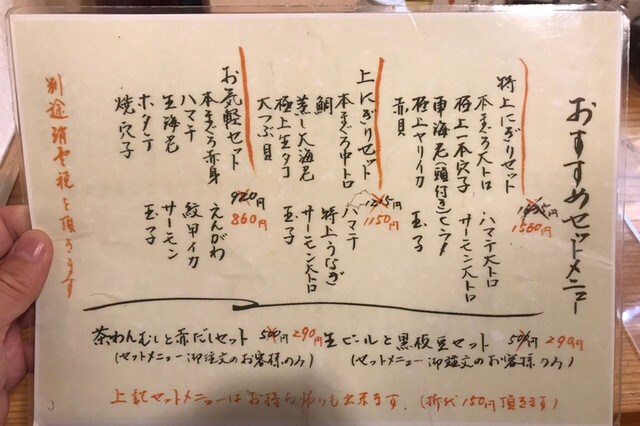 おすすめセットメニュー
特上にぎりセット
本まぐろ大トロ
極上一本穴子
車海老(頭付き)
極上ヤリイカ
赤貝
ハマチ大トロ
サーモン大トロ
玉子
1560円
上にぎりセット
本まぐろ中トロ
鯛
蒸し大海老
極上生タコ
大つぶ貝
ハマチ
特上うなぎ
サーモン大トロ
玉子
1215円
1150円
お気軽セット
本まぐろ赤身
ハマチ
生海老
ホタテ
焼穴子
えんがわ
紋甲イカ
サーモン
玉子
920円
860円
別途消費税を頂きます
茶わんむしと赤だしセット 500円 290円
(セットメニュー御注文のお客様のみ)
生ビールと黒枝豆セット 500円 290円
(セットメニュー御注文のお客様のみ)
上記セットメニューはお持ち帰りも出来ます。(折代150円頂きます)